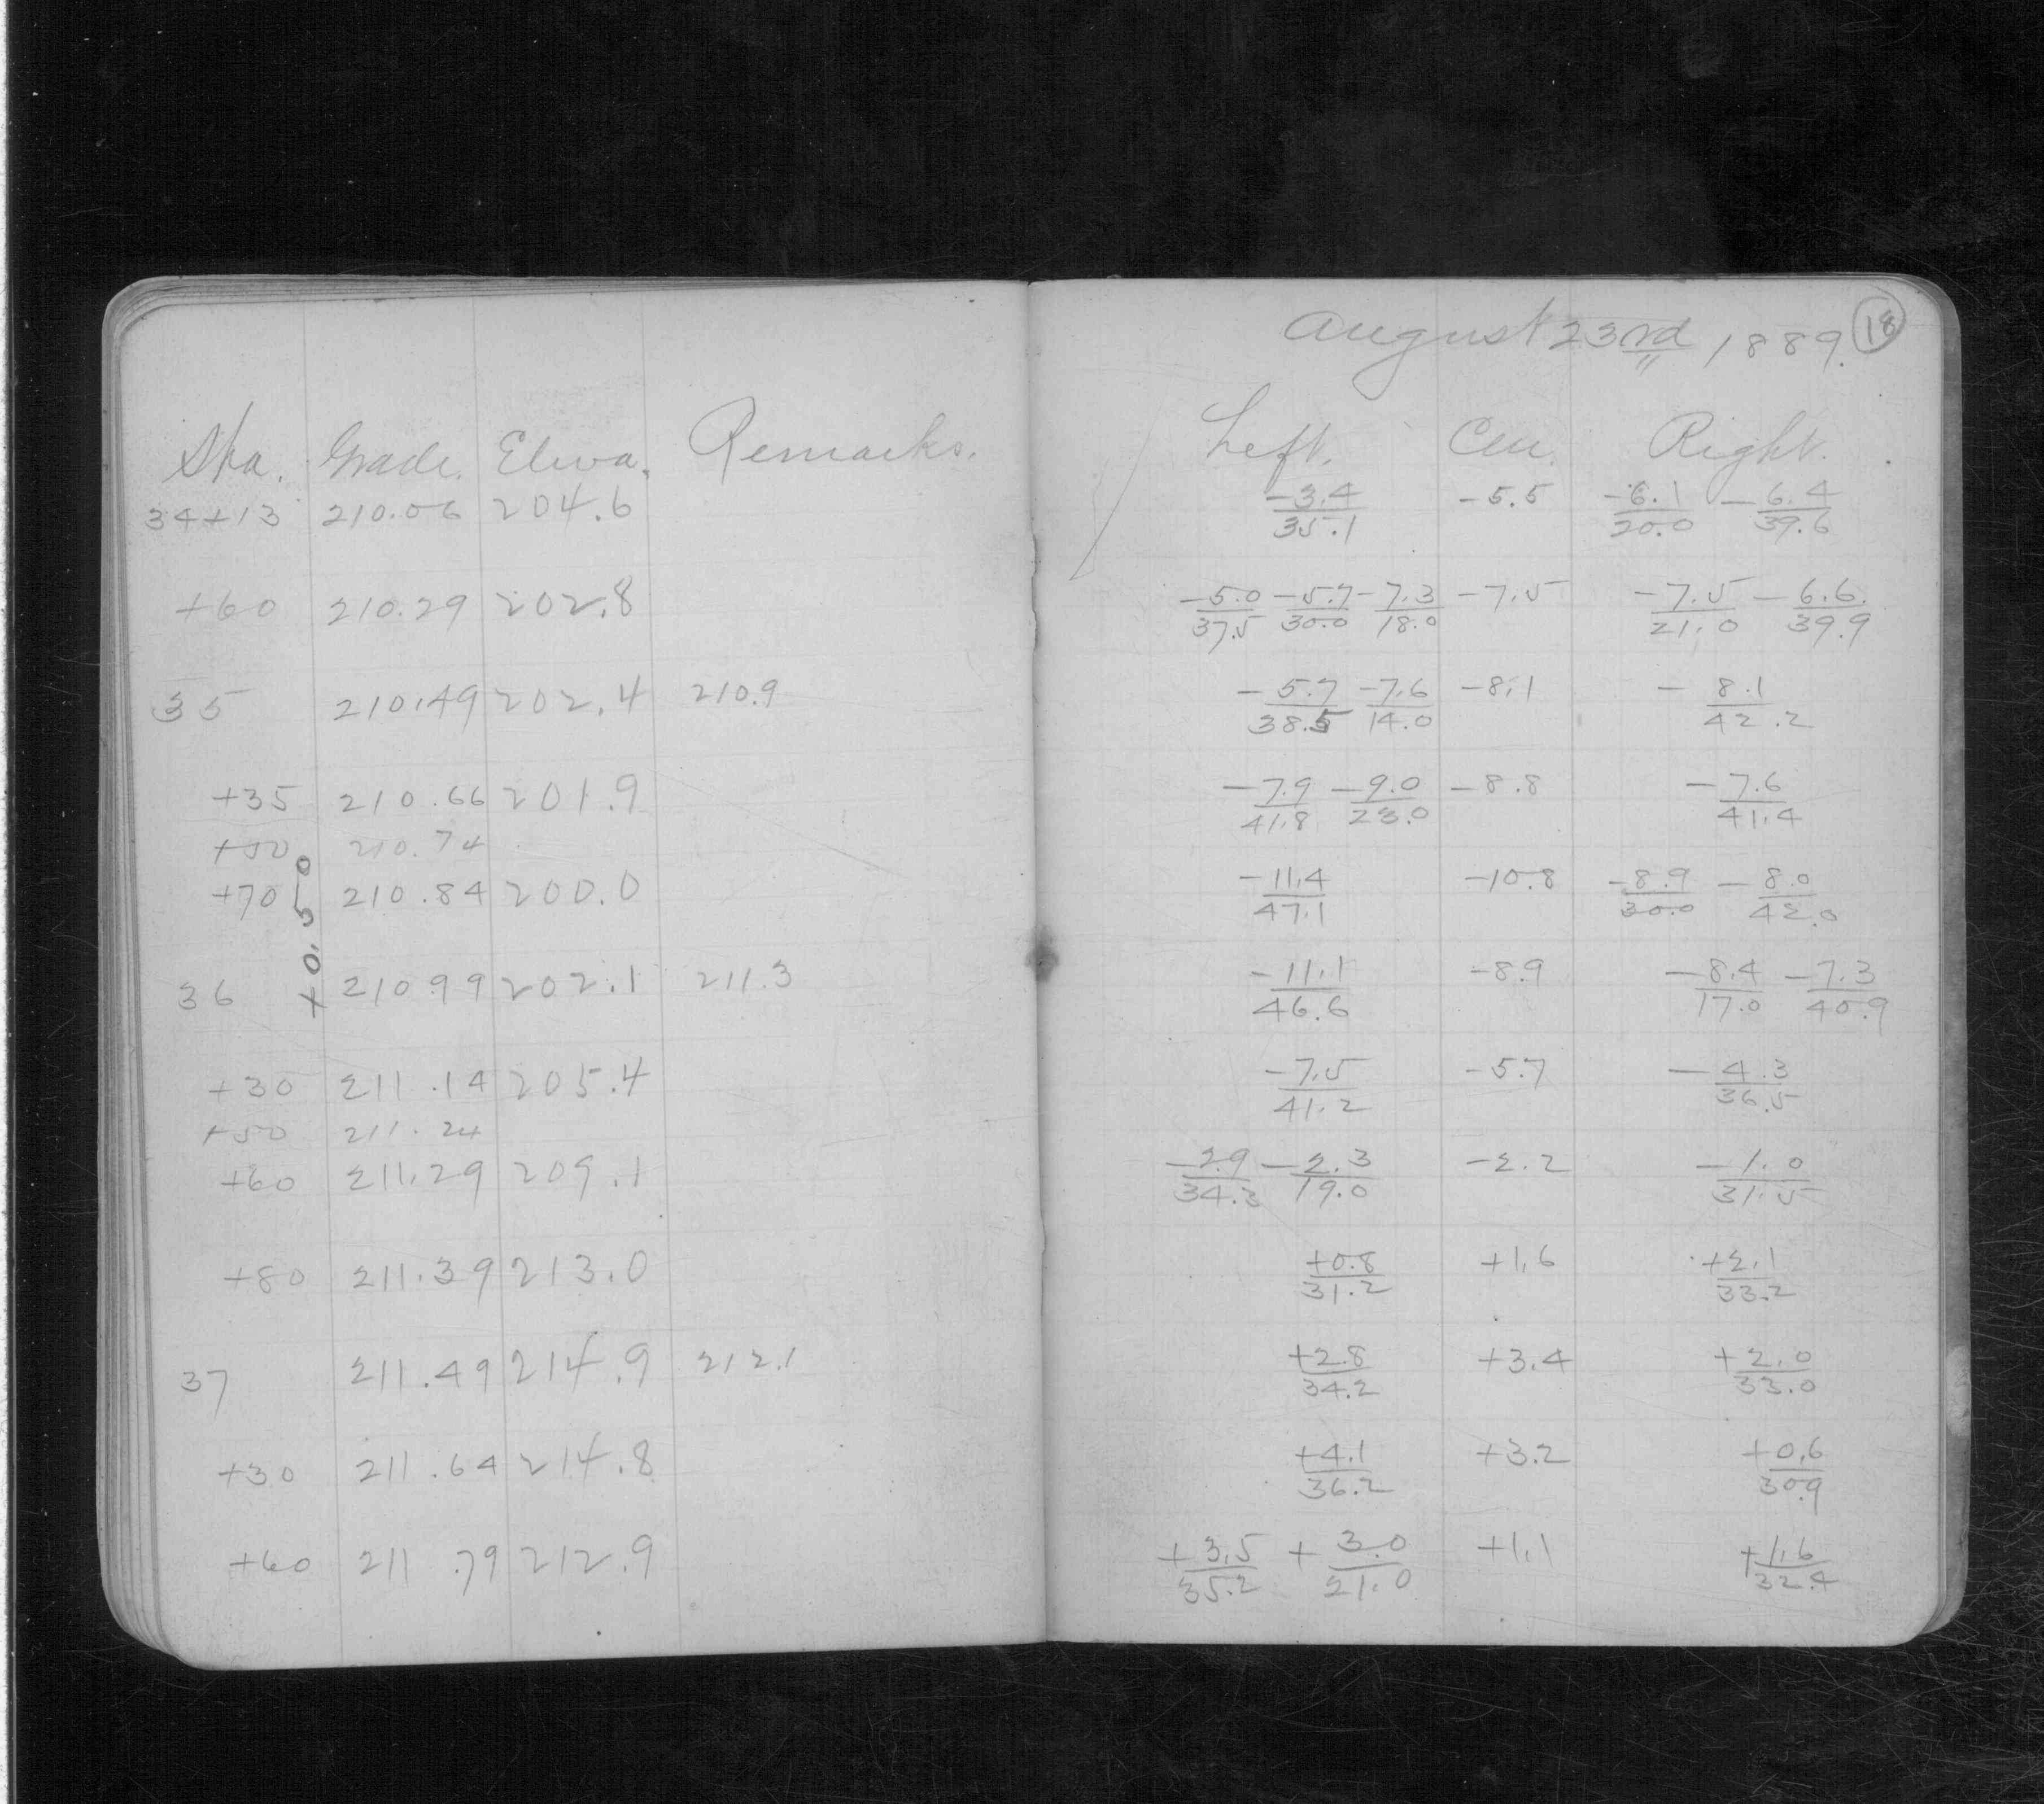 Sta. Grade. Eleva. Remarks.
34+13 210.06 204.6
+60 210.29 202.8
35 210.49 202.4 210.9
+35 210.66 201.9
+50 210.74
+70 210.84 200.0
36 210 99 202.1 211.3
+0.50
+30 211.14 205.4
+50 211.24
+60 211.29 209.1
+80 211.39 213.0
37 211.49 214.9 212.1
+30 211.64 214.8
+60 211 .79 212.9
August 23rd, 1889. 18
Left. Cen. Right.
-3.4 -5.5 -6.1 -6.4
35.1 20.0 39.6
-5.0 -5.7 -7.3 -7.5 -7.5 -6.6.
37.5 30.0 18.0 21.0 39.9
-5.7 -7.6 -8.1 -8.1
38.5 14.0 42.2
-7.9 -9.0 -8.8 -7.6
41.8 23.0 41.4
-11.4 -10.8 -8.9 -8.0
47.1 30.0 42.0
-11.1 -8.9 -8.4 -7.3
46.6 17.0 40.9
-7.5 -5.7 -4.3
41.2 36.5
-2.9 -2.3 -2.2 -1.0
34.3 19.0 31.5
+0.8 +1.6 +2.1
31.2 33.2
+2.8 +3.4 +2.0
34.2 33.0
+4.1 +3.2 +0.6
36.2 30.9
+3.5 +3.0 +1.1 +1.6
35.2 21.0 32.4